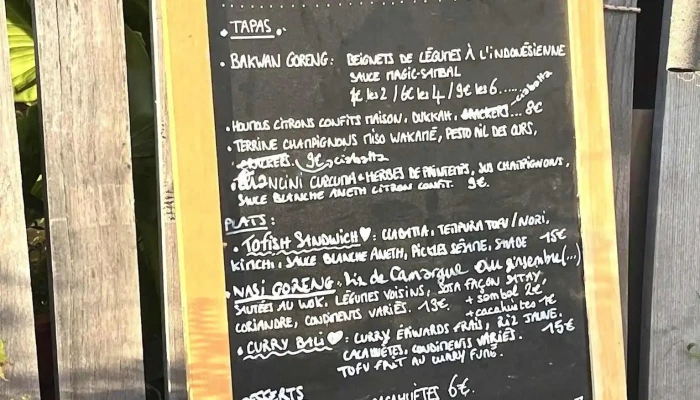 • TAPAS •
• BAKWAN GORENG: BEIGNETS DE LÉGUMES À L'INDONÉSIENNE
SAUCE MAGIC-SAMBAL
les 2 / 6€ les 4 / 9€ les 6.....
• HOUMOUS CITRONS CONFITS MAISON, DUKKAH, CRACKERS... 8€ ciabatta
• TERRINE CHAMPIGNONS MISO WAKAMÉ, PESTO AIL DES OURS,
CRACKERS. 9€ ciabatta
• CURCUMA & HERBES DE PRINTEMPS, JUS CHAMPIGNONS,
SAUCE BLANCHE ANETH CITRON CONFIT. 9€.
PLATS:
• TOFISH SANDWICH ♥: CIABATTA, TEMPURA TOFU / NORI,
KIMCHI, SAUCE BLANCHE ANETH, PICKLES SÉSAME, SALADE 15€
• NASI GORENG: Riz de Camargue au gingembre (...)
SAUTÉES AU WOK, LÉGUMES VOISINS, SOJA FAÇON SATAY,
CORIANDRE, CONDIMENTS VARIÉS. 13€. + sambal 2€
+ cacahuètes 1€
• CURRY BALI ♥: CURRY ÉPINARDS FRAIS, RIZ JAUNE,
CACAHUÈTES, CONDIMENTS VARIÉS. 15€
TOFU FAIT AU CURRY FUMÉ.
DESSERTS
CACAHUÈTES 6€.